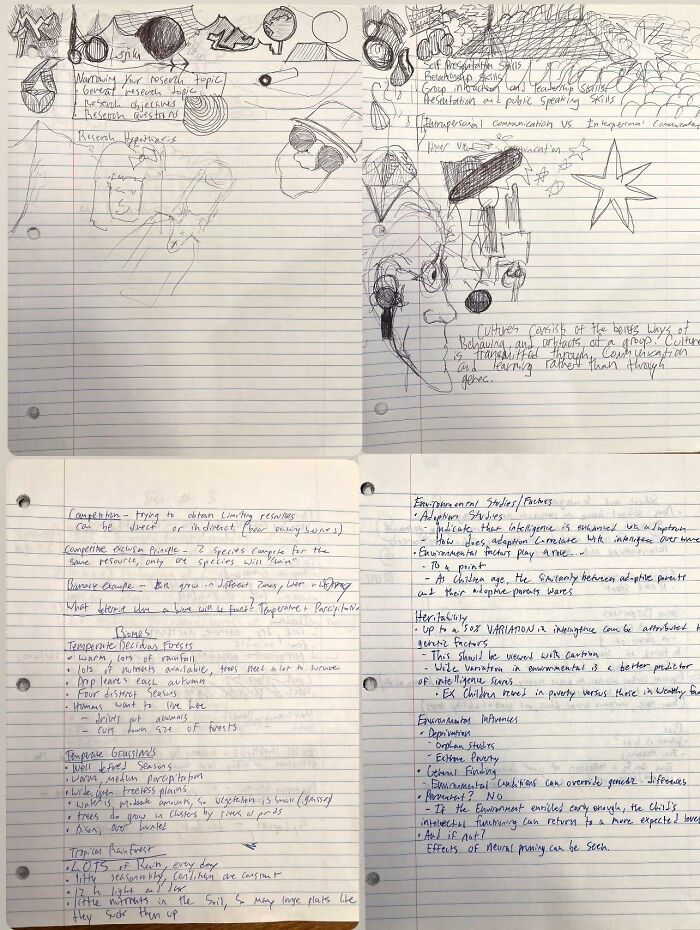 Narrowing Your research topic
· General research topic
Research objectives
· Research Questions
Research Hypothesis
Self Presentation Skills
Relationship Skills
Group interaction and leadership skills
Presentation and public speaking skills
Intrapersonal communication vs. Interpersonal
Cultures consist of the beings ways of
Behaving, and artifacts of a group. Culture
is transmitted through Communication
and learning rather than through
genec.
Competition - trying to obtain limiting resources
can be direct or indirect (bear eating berries)
Competitive exclusion Principle - 2 Species Compete for the
same resource, only one species will "win"
Barnacle Example - grow in different Zones,
What determine where a biome will be found? Temperature + Parcipitation
Biomes
Temperate Deciduous Forests
• Warm, lots of rainfall
• lots of nutrients available, trees need a lot to survive
• Drop leaves each autumn
• Four distinct Seasons
• Humans want to live here
- drives out animals
- cuts down size of forests
Temperate Grasslands
• Well defined Seasons
• Warm, medium parcipitation
• Wide open treeless plains
• water is moderate amounts, so vegetation is Small (grasses)
• trees do grow in Clusters by rivers or ponds
• Bison, over hunted
Tropical Rainforest
• LOTS of Rain, every day
• little seasonality, Conditions are constant
• 12 h light and dark
• little nutrients in the Soil, So many large plants like
they suck them up
Environmental Studies/Factors
• Adoption Studies
- Indicate that intelligence is enhanced via adoption
- How does adoption Correlate with intelligence over
• Environmental factors play a role....
- To a point
- As Children age, the Similarity between adoptive parents
and their adoptive parents wanes.
Heritability
• Up to a 50% VARIATION in intelligence can be attributed
genetic factors
- This should be viewed with caution
- Wide variation in environmental is a better predictor
of intelligence scores
• Ex Children raised in poverty versus those in Wealthy
Environmental Influences
• Deprivation
- Orphan Studies
- Extreme Poverty
• General Finding
- Environmental Conditions can override genetic differences
• Permanent? NO
- If the Environment enriched early enough, the Child's
intellectual functioning can return to a more expected level
• And if not?
Effects of neural pruning can be seen.